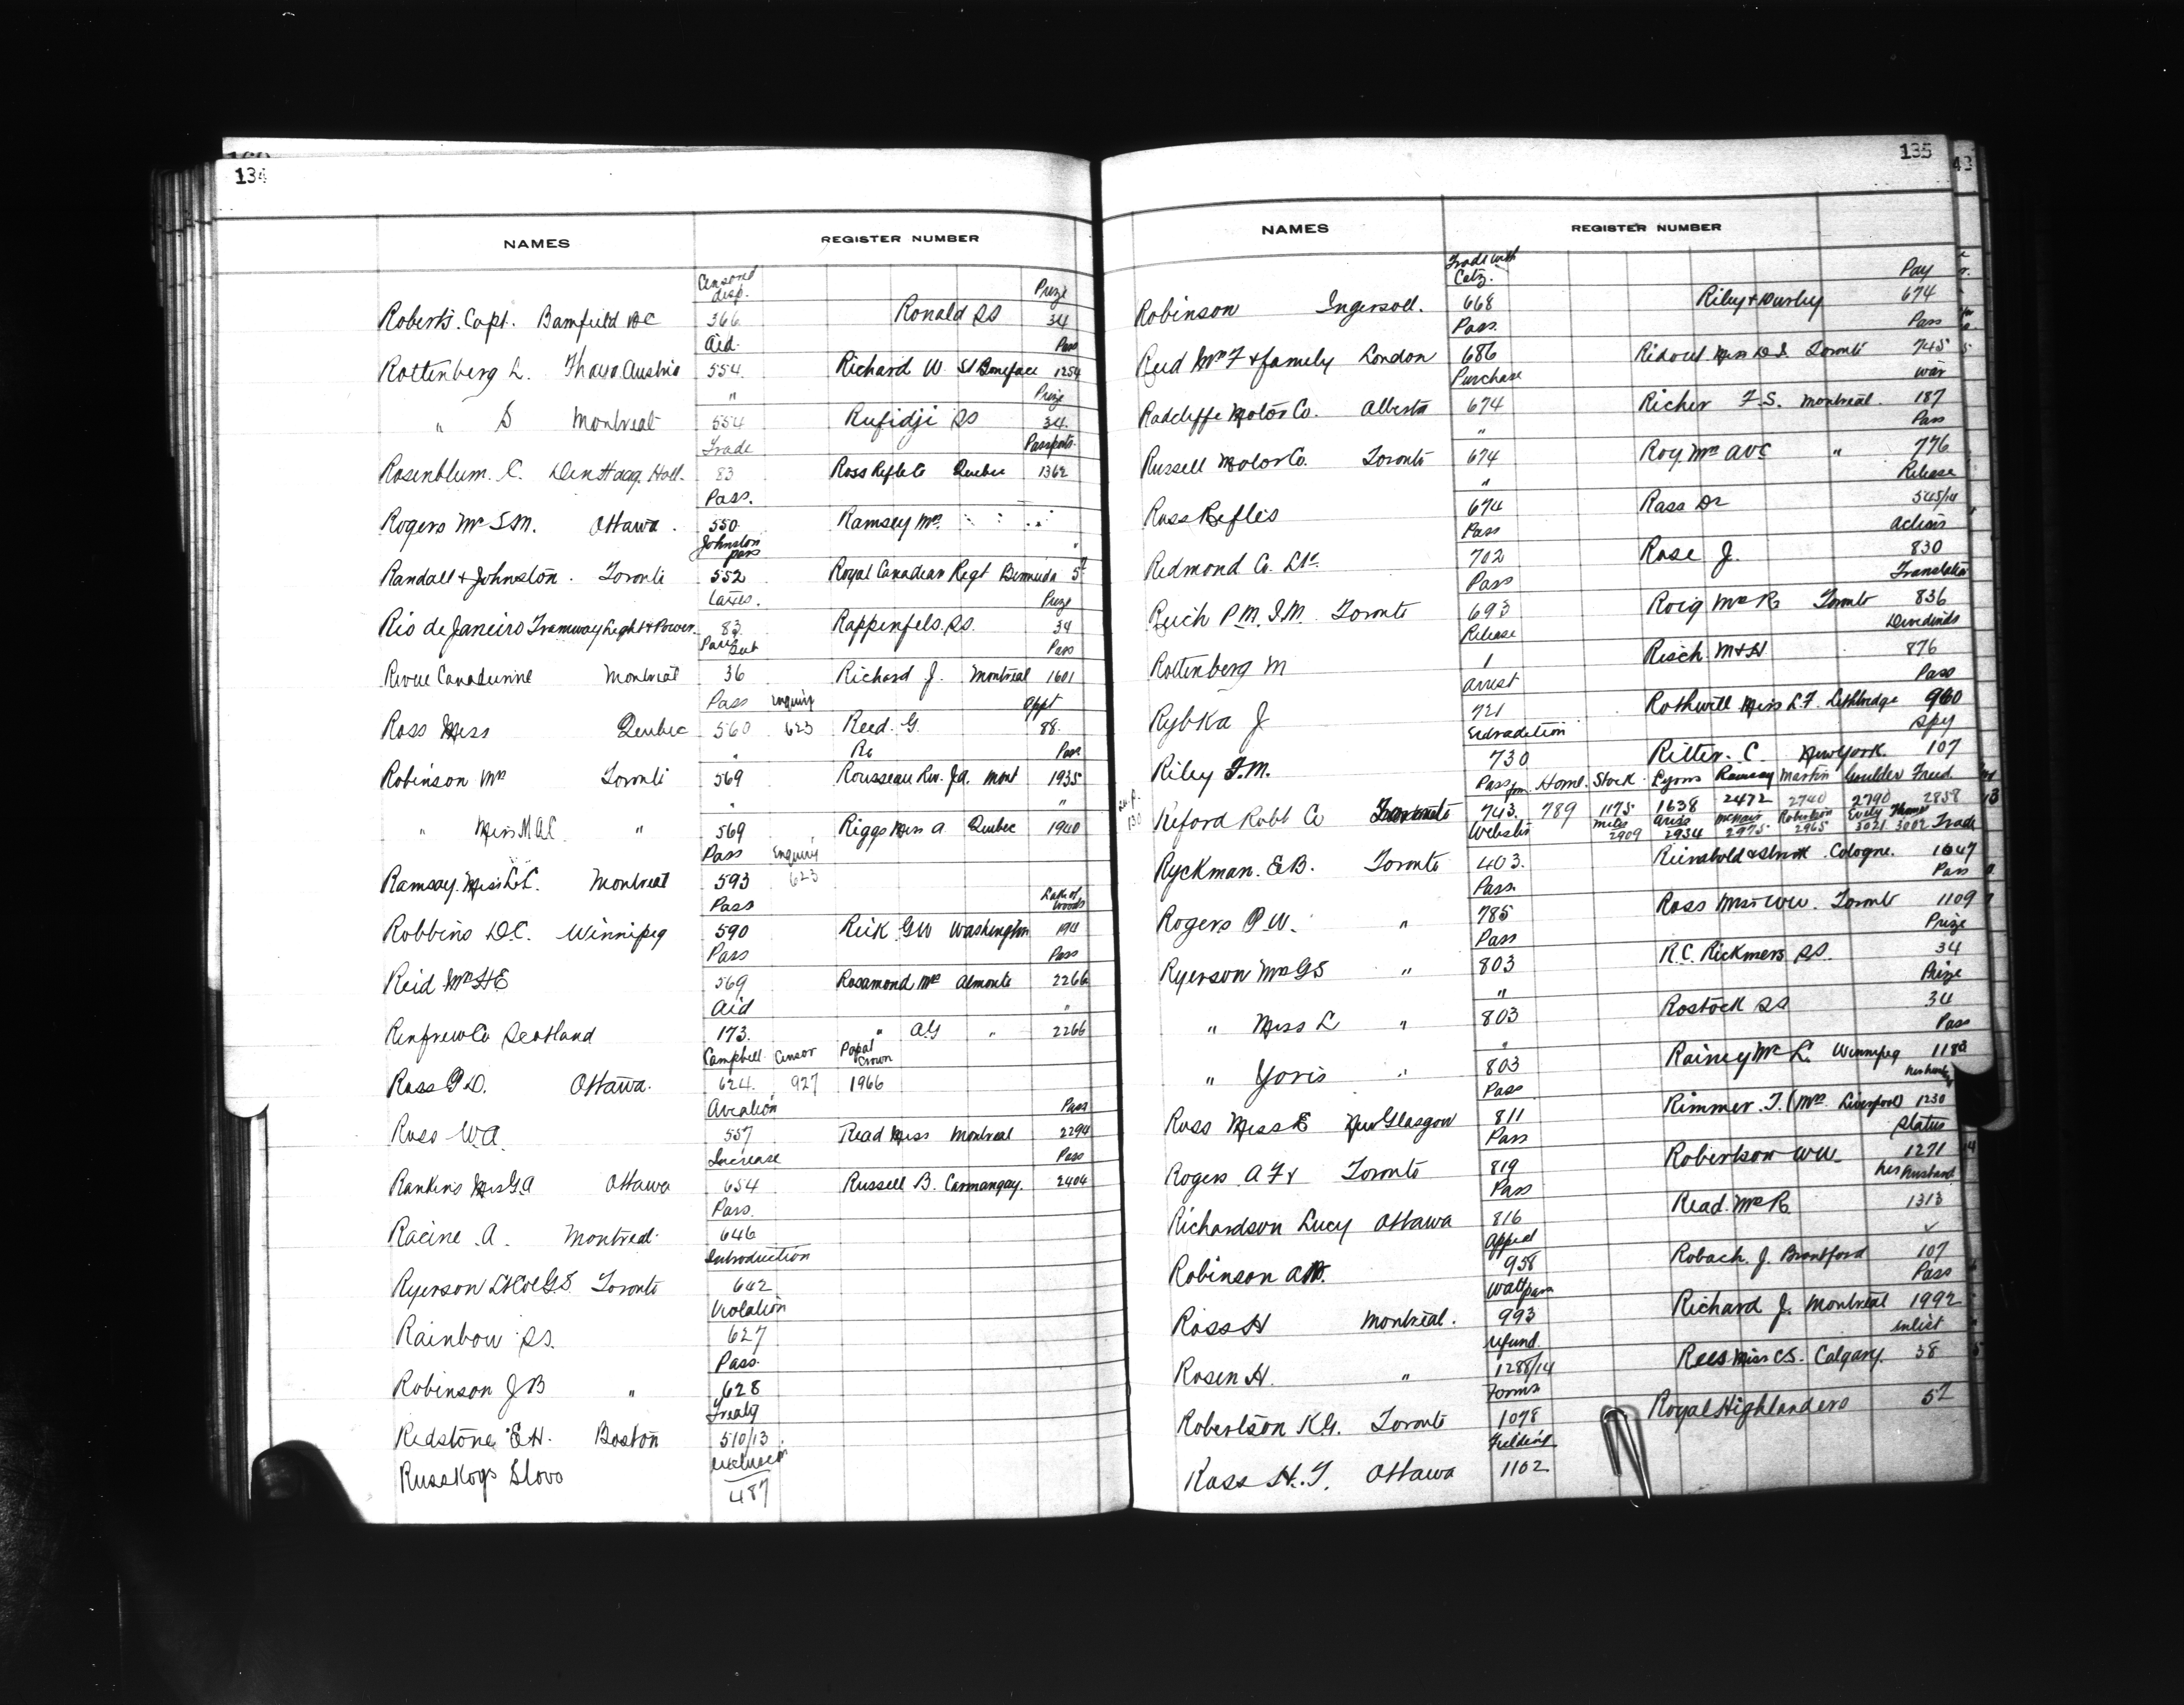 134
NAMES REGISTER NUMBER
Censored disp. Prize
Roberts. Capt. Bamfield BC 366 Ronald SS 34
Aid. Pass
Rottenberg L. Austria 554. Richard W. St Boniface 1254
" Prize
" S Montreal 554 Rufidji SS 34.
Trade Passports
Rosenblum. C. Den Haag. Holl. 83 Ross Rifle Co Quebec 1362
Pass.
Rogers Mr S.M. Ottawa. 550 Ramsey Mrs.
Johnston pass "
Randall & Johnston. Toronto 552 Royal Canadian Regt Bermuda
Taxes. Prize
Rio de Janeiro Tramway Light & Power. 83 Rappenfels. SS. 34
Pass
Revue Canadienne Montreal 36 Richard J. Montreal 1601
Pass Enquiry Appt
Ross Miss Quebec 560 623 Reed. G. 88.
" Re Pass
Robinson Mrs Toronto 569 Rousseau Rev. J.A. Mont 1935
" "
" Miss M.A.C. " 569 Riggs Miss A. Quebec 1940
Pass Enquiry
Ramsay. Miss Montreal 593 623
Pass Lake of Woods
Robbins D.C. Winnipeg 590 Reik G.W Washington 194
Pass Pass
Reid Mrs H E 569 Rosamond Mrs Almonte 2266
Aid "
Renfrew Co Scotland 173. " A.G " 2266
Campbell Censor Papal Crown
Ross G.D. Ottawa. 624. 927 1966
Aviation Pass
Ross W.A. 557 Read Miss Montreal 2294
Increase Pass
Rankins Miss G.A Ottawa 654 Russell B. Carmangay. 2404
Pass.
Racine. A. Montreal. 646
Introduction
Ryerson G.S. Toronto 642
Violation
Rainbow SS. 627
Pass.
Robinson J B " 628
Treaty
Redstone E.H. Boston 510/13
Russkoys Slovo 487
135
NAMES REGISTER NUMBER
Trade with Pay
Robinson Ingersoll. 668 Riley & 674
Pass. Pass
Reid Mrs F & family London 686 Ridout Miss D.S. Toronto 745
Purchase War
Radcliffe Motor Co. Alberta 674 Richer F.S. Montreal. 187
" Pass
Russell Motor Co. Toronto 674 Roy. Mrs AVC " 776
" Release
Ross Rifles 674 Rass Dr 545/14
Pass
Redmond Co. Ltd. 702 Rose J. 830
Pass Translation
Reich P.M.I.M. Toronto 693 Roig Mrs R. Toronto 836
Release Dividends
Rottenberg M 1 Risch M & H 876
Arrest Pass
Rybka J 721 Rothwell Miss L.F. Lethbridge 960
Extradition Spy
Riley F.M. 730 Ritter. C. New York. 107
Pass Stock Lyons Ramsay Martin Goulder Freed
Reford Robt Co Toronto 743. 789 1175 1638 2472 2740 2790 2858
Webster Miles Ariss McNair Robertson Evely Trade
2909 2934 2975 2965 3021 3002
Ryckman. E.B. Toronto 403. Reinsbold & Cologne. 1047
Pass. Pass
Rogers P.W. " 785 Ross Toronto 1109
Pass Prize
Ryerson Mrs G S " 803 R.C. Rickmers SS. 34
" Prize
" Miss L " 803 Rostock SS 34
" Pass
" Yoris " 803 Rainey Mrs L. Winnipeg
Pass her husband
Ross Miss E New Glasgow 811 Rimmer. T. (Mrs. Liverpool) 1230
Pass Status
Rogers A F & Toronto 819 Robertson 1271
Pass her husband
Richardson Lucy Ottawa 816 Read. Mrs R. 1313
Appeal
Robinson 958 Roback. J. Brantford 107
Watt pass Pass
Ross H Montreal. 993 Richard J. Montreal 1992
Refund enlist
Rosen H. " 1288/14 Rees Miss C.S. Calgary. 38
Forms
Robertson K.G. Toronto 1078 Royal Highlanders 52
Fielding
Ross H.T. Ottawa 1102